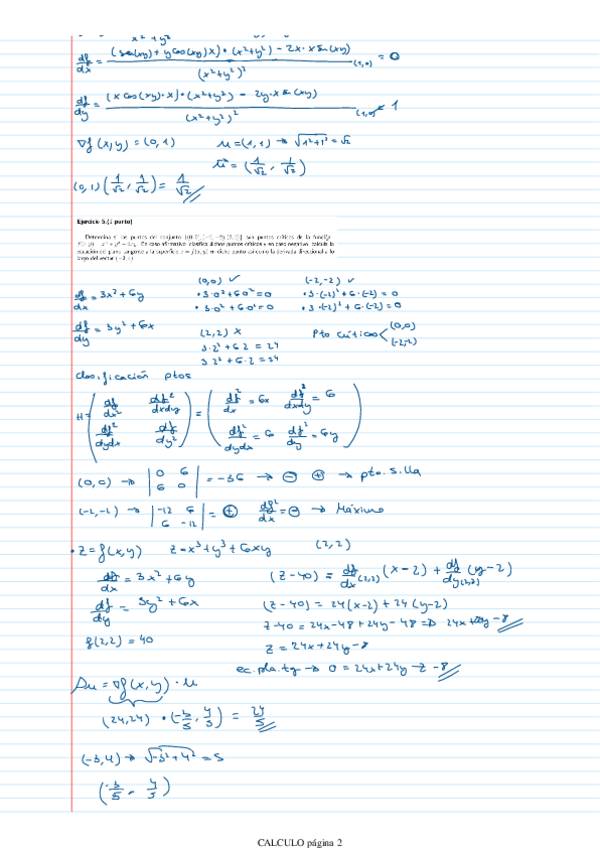 x²+y²
df/dx = ((sen(xy)+ycos(xy)x)·(x²+y²) - 2x·x sen(xy))/(x²+y²)² (1,0) = 0
df/dy = ((x cos(xy)·x)·(x²+y²) - 2y·x sen(xy))/(x²+y²)² (1,0) = 1
∇f(x,y) = (0,1) u=(1,1) → √1²+1² = √2
ū = (1/√2, 1/√2)
(0,1)(1/√2, 1/√2) = 1/√2
Ejercicio 5.(1 punto)
Determina si los puntos del conjunto son puntos críticos de la función
En caso afirmativo, clasifica dichos puntos críticos y en caso negativo, calcula la
ecuación del plano tangente a la superficie en dicho punto así como la derivada direccional a lo
largo del vector
(0,0) ✓ (-2,-2) ✓
df/dx = 3x²+6y · 3·0²+6·0²=0 · 3·(-2)²+6·(-2)=0
· 3·0²+6·0²=0 · 3·(-2)²+6·(-2)=0
df/dy = 3y²+6x (2,2) X Pto críticos < (0,0) (-2,-2)
3·2²+6·2 = 24
3·2²+6·2 = 24
Clasificación ptos
H = (df²/dx² df²/dxdy df²/dydx df²/dy²) = (df²/dx = 6x df²/dxdy = 6 df²/dydx = 6 df²/dy = 6y)
(0,0) → |0 6 6 0| = -36 → ⊖ ⊕ → pto. silla
(-2,-2) → |-12 6 6 -12| = ⊕ df²/dx = ⊖ → Máximo
· Z = f(x,y) Z = x³+y³+6xy (2,2)
df/dx = 3x²+6y (Z-40) = df/dx(2,2) (x-2) + df/dy(2,2) (y-2)
df/dy = 3y²+6x (Z-40) = 24(x-2)+24(y-2)
Z-40 = 24x-48+24y-48 ⇒ 24x+24y-8
f(2,2) = 40 Z = 24x+24y-8
ec. pla. tg → 0 = 24x+24y-Z-8
Du = ∇f(x,y)·u
(24,24)·(-3/5, 4/5) = 24/5
(-3,4) → √-3²+4² = 5
(-3/5, 4/5)
CALCULO página 2